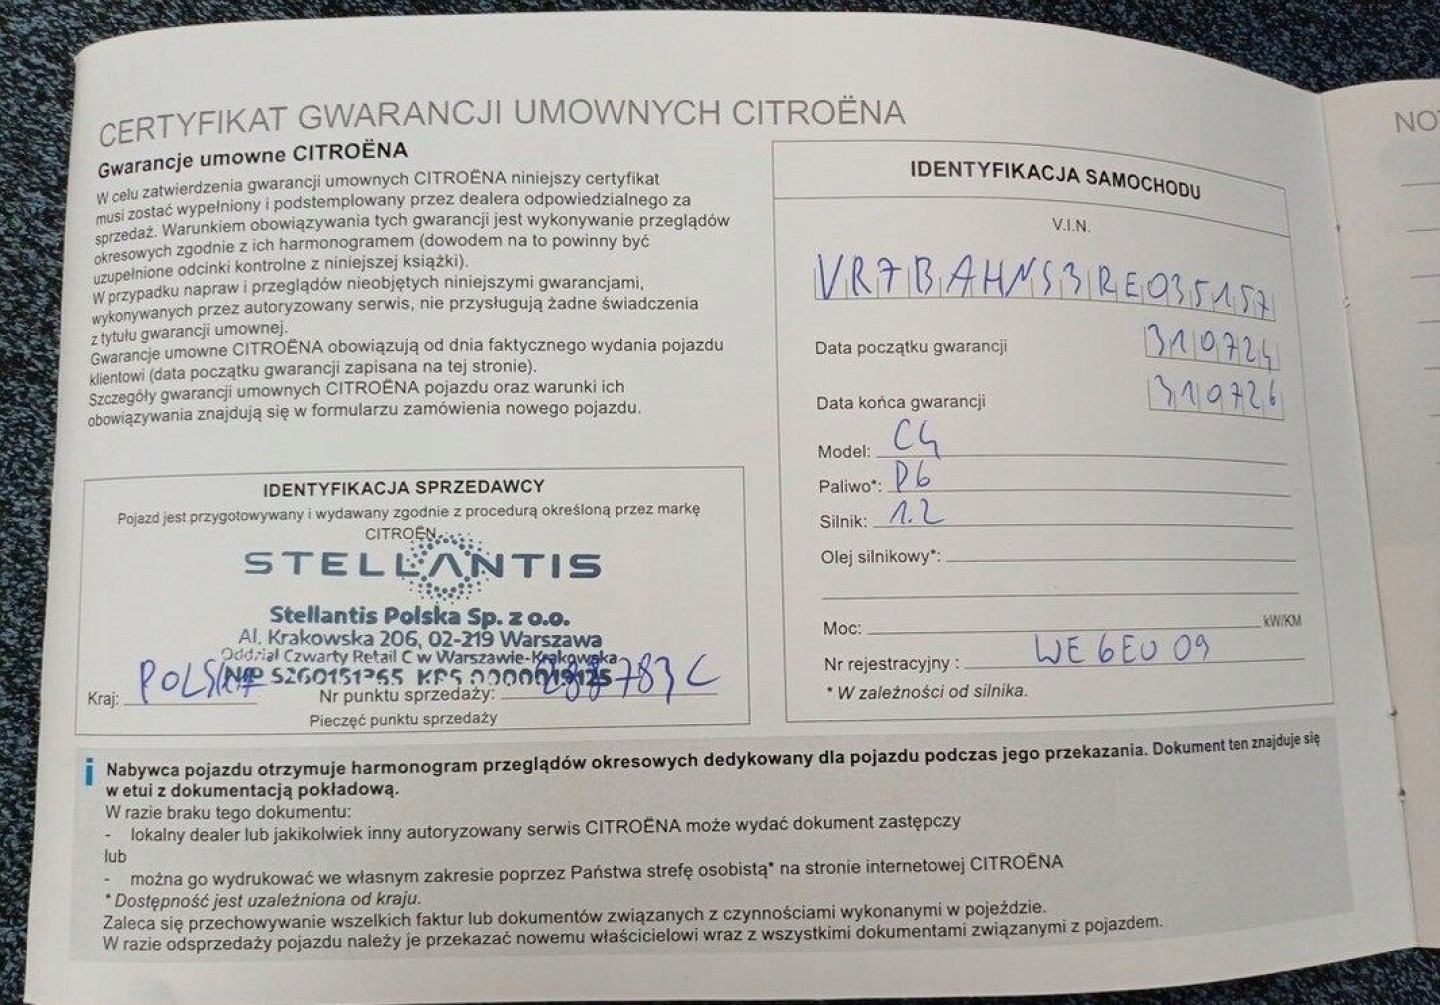 CERTYFIKAT GWARANCJI UMOWNYCH CITROËNA
Gwarancje umowne CITROËNA
W celu zatwierdzenia gwarancji umownych CITROËNA niniejszy certyfikat
musi zostać wypełniony i podstemplowany przez dealera odpowiedzialnego za
sprzedaż. Warunkiem obowiązywania tych gwarancji jest wykonywanie przeglądów
okresowych zgodnie z ich harmonogramem (dowodem na to powinny być
uzupełnione odcinki kontrolne z niniejszej książki).
W przypadku napraw i przeglądów nieobjętych niniejszymi gwarancjami,
wykonywanych przez autoryzowany serwis, nie przysługują żadne świadczenia
z tytułu gwarancji umownej.
Gwarancje umowne CITROËNA obowiązują od dnia faktycznego wydania pojazdu
klientowi (data początku gwarancji zapisana na tej stronie).
Szczegóły gwarancji umownych CITROËNA pojazdu oraz warunki ich
obowiązywania znajdują się w formularzu zamówienia nowego pojazdu.
IDENTYFIKACJA SPRZEDAWCY
Pojazd jest przygotowywany i wydawany zgodnie z procedurą określoną przez markę
CITROËN.
STELLANTIS
Stellantis Polska Sp. z o.o.
Al. Krakowska 206, 02-219 Warszawa
Oddział Czwarty Retail C w Warszawie-Krakowska
NIP 5260151365 KRS
Kraj: POLSKA Nr punktu sprzedaży: 783C
Pieczęć punktu sprzedaży
IDENTYFIKACJA SAMOCHODU
V.I.N.
VR7BAHNS3RE035157
Data początku gwarancji 310724
Data końca gwarancji 310726
Model: C4
Paliwo*: P6
Silnik: 1.2
Olej silnikowy*:
Moc: kW/KM
Nr rejestracyjny : WE 6EU 09
* W zależności od silnika.
i Nabywca pojazdu otrzymuje harmonogram przeglądów okresowych dedykowany dla pojazdu podczas jego przekazania. Dokument ten znajduje się
w etui z dokumentacją pokładową.
W razie braku tego dokumentu:
- lokalny dealer lub jakikolwiek inny autoryzowany serwis CITROËNA może wydać dokument zastępczy
lub
- można go wydrukować we własnym zakresie poprzez Państwa strefę osobistą* na stronie internetowej CITROËNA
* Dostępność jest uzależniona od kraju.
Zaleca się przechowywanie wszelkich faktur lub dokumentów związanych z czynnościami wykonanymi w pojeździe.
W razie odsprzedaży pojazdu należy je przekazać nowemu właścicielowi wraz z wszystkimi dokumentami związanymi z pojazdem.
NO